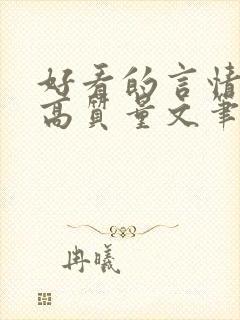 好看的言情
高质量文笔
冉曦